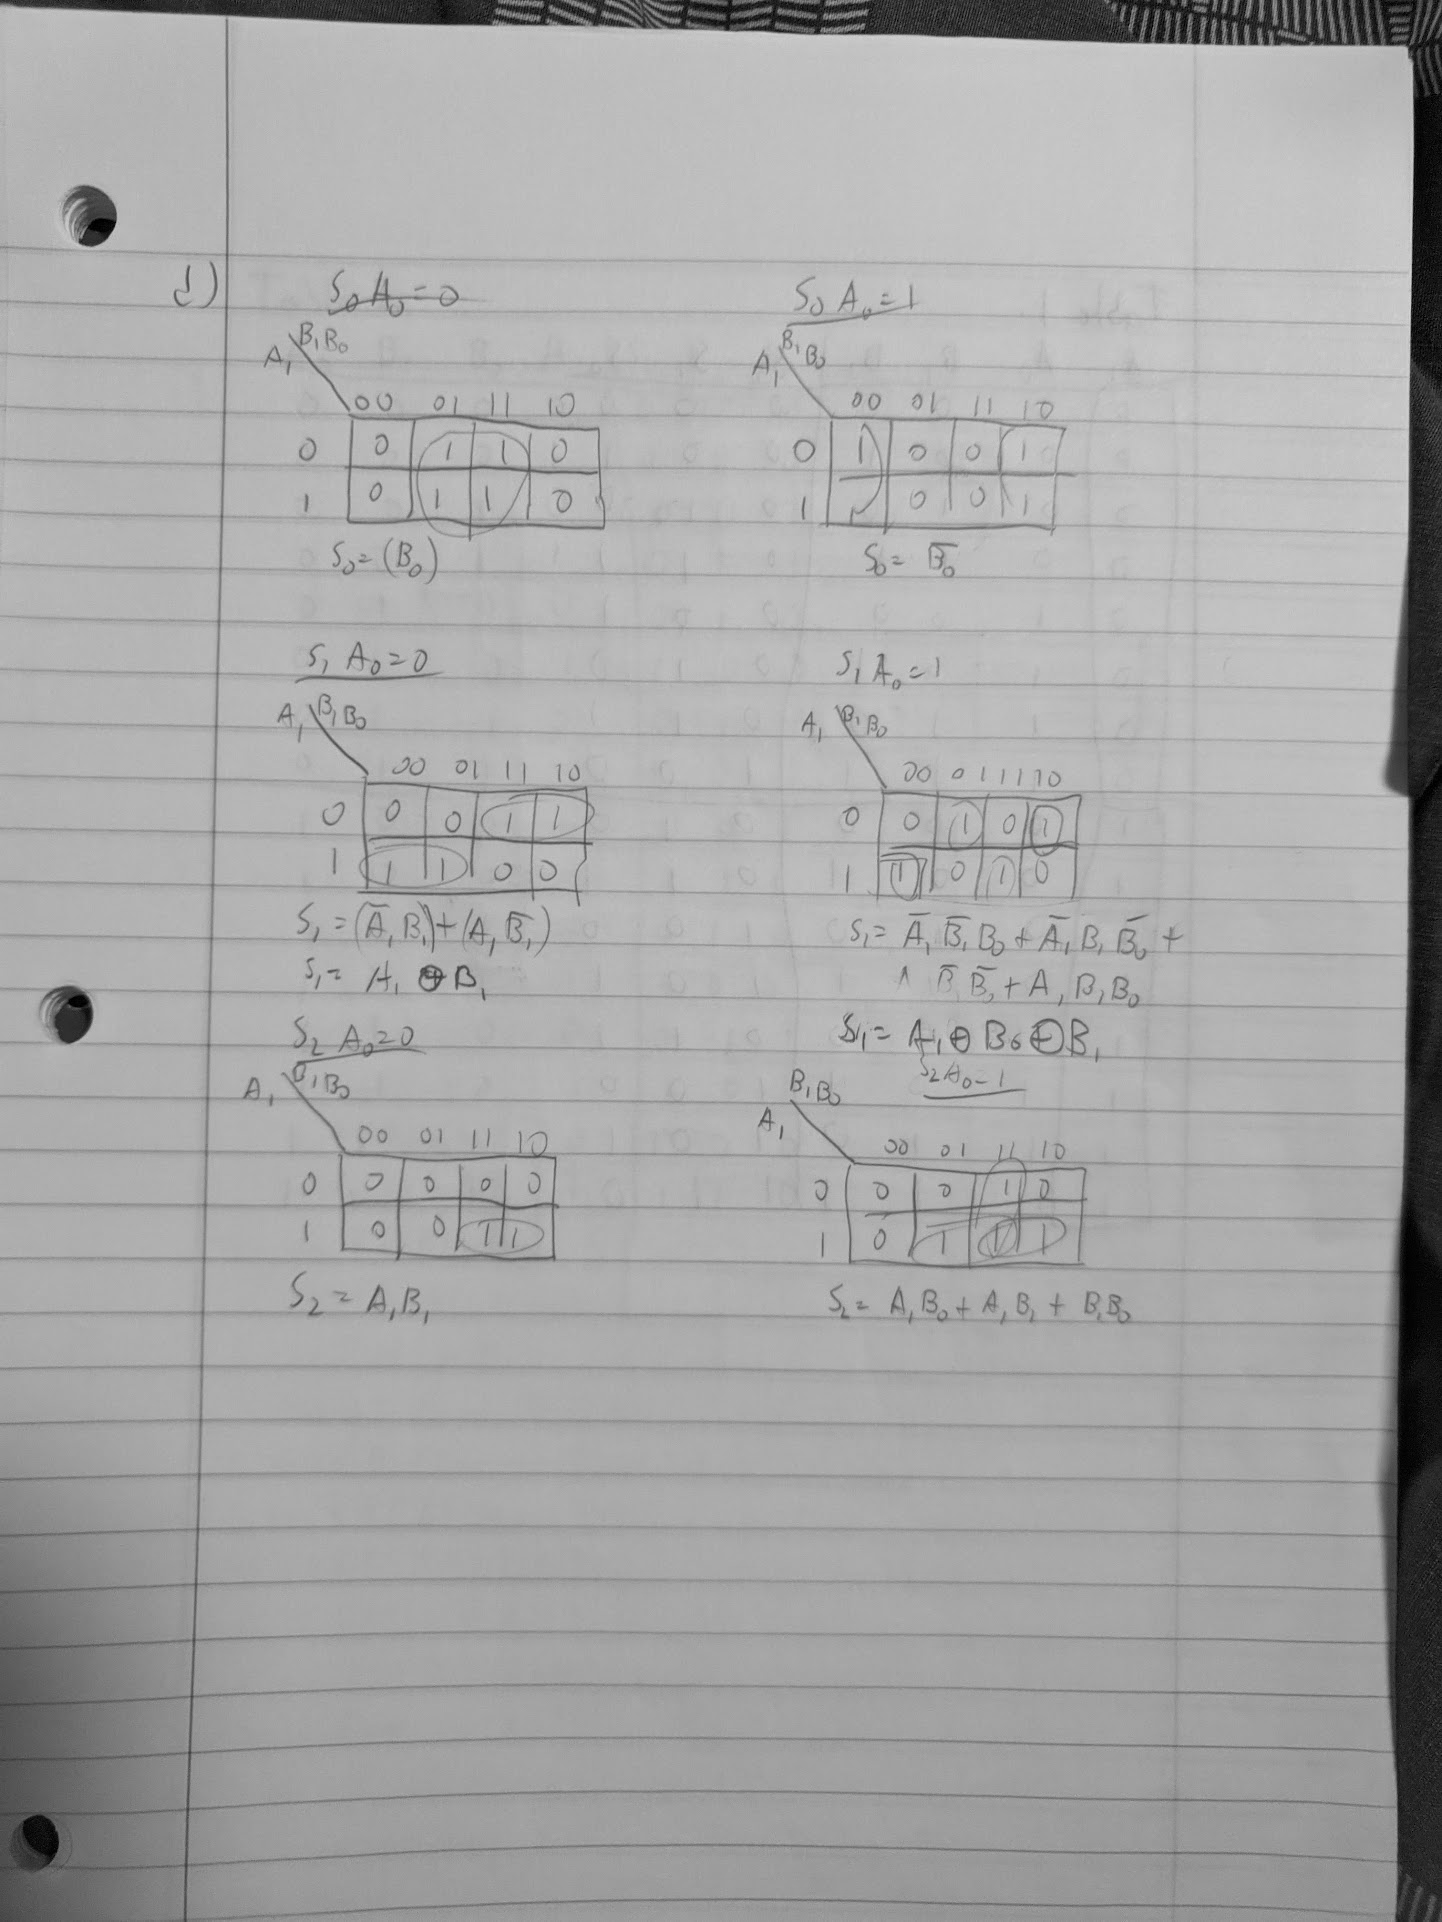 1)
S₀ A₀=0
A₁ B₁B₀
00 01 11 10
0 0 1 1 0
1 0 1 1 0
S₀=(B₀)
S₀ A₀=1
A₁ B₁B₀
00 01 11 10
0 1 0 0 1
1 1 0 0 1
S₀= B̅₀
S₁ A₀=0
A₁ B₁B₀
00 01 11 10
0 0 0 1 1
1 1 1 0 0
S₁=(A̅₁B₁)+(A₁B̅₁)
S₁= A₁ ⊕ B₁
S₁ A₀=1
A₁ B₁B₀
00 01 11 10
0 0 1 0 1
1 1 0 1 0
S₁= A̅₁ B̅₁ B₀ + A̅₁ B₁ B̅₀ +
A₁ B̅₁ B̅₀ + A₁ B₁ B₀
S₁= A₁ ⊕ B₀ ⊕ B₁
S₂ A₀=0
A₁ B₁B₀
00 01 11 10
0 0 0 0 0
1 0 0 1 1
S₂ = A₁B₁
S₂ A₀=1
A₁ B₁B₀
00 01 11 10
0 0 0 1 0
1 0 1 1 1
S₂= A₁B₀ + A₁B₁ + B₁B₀